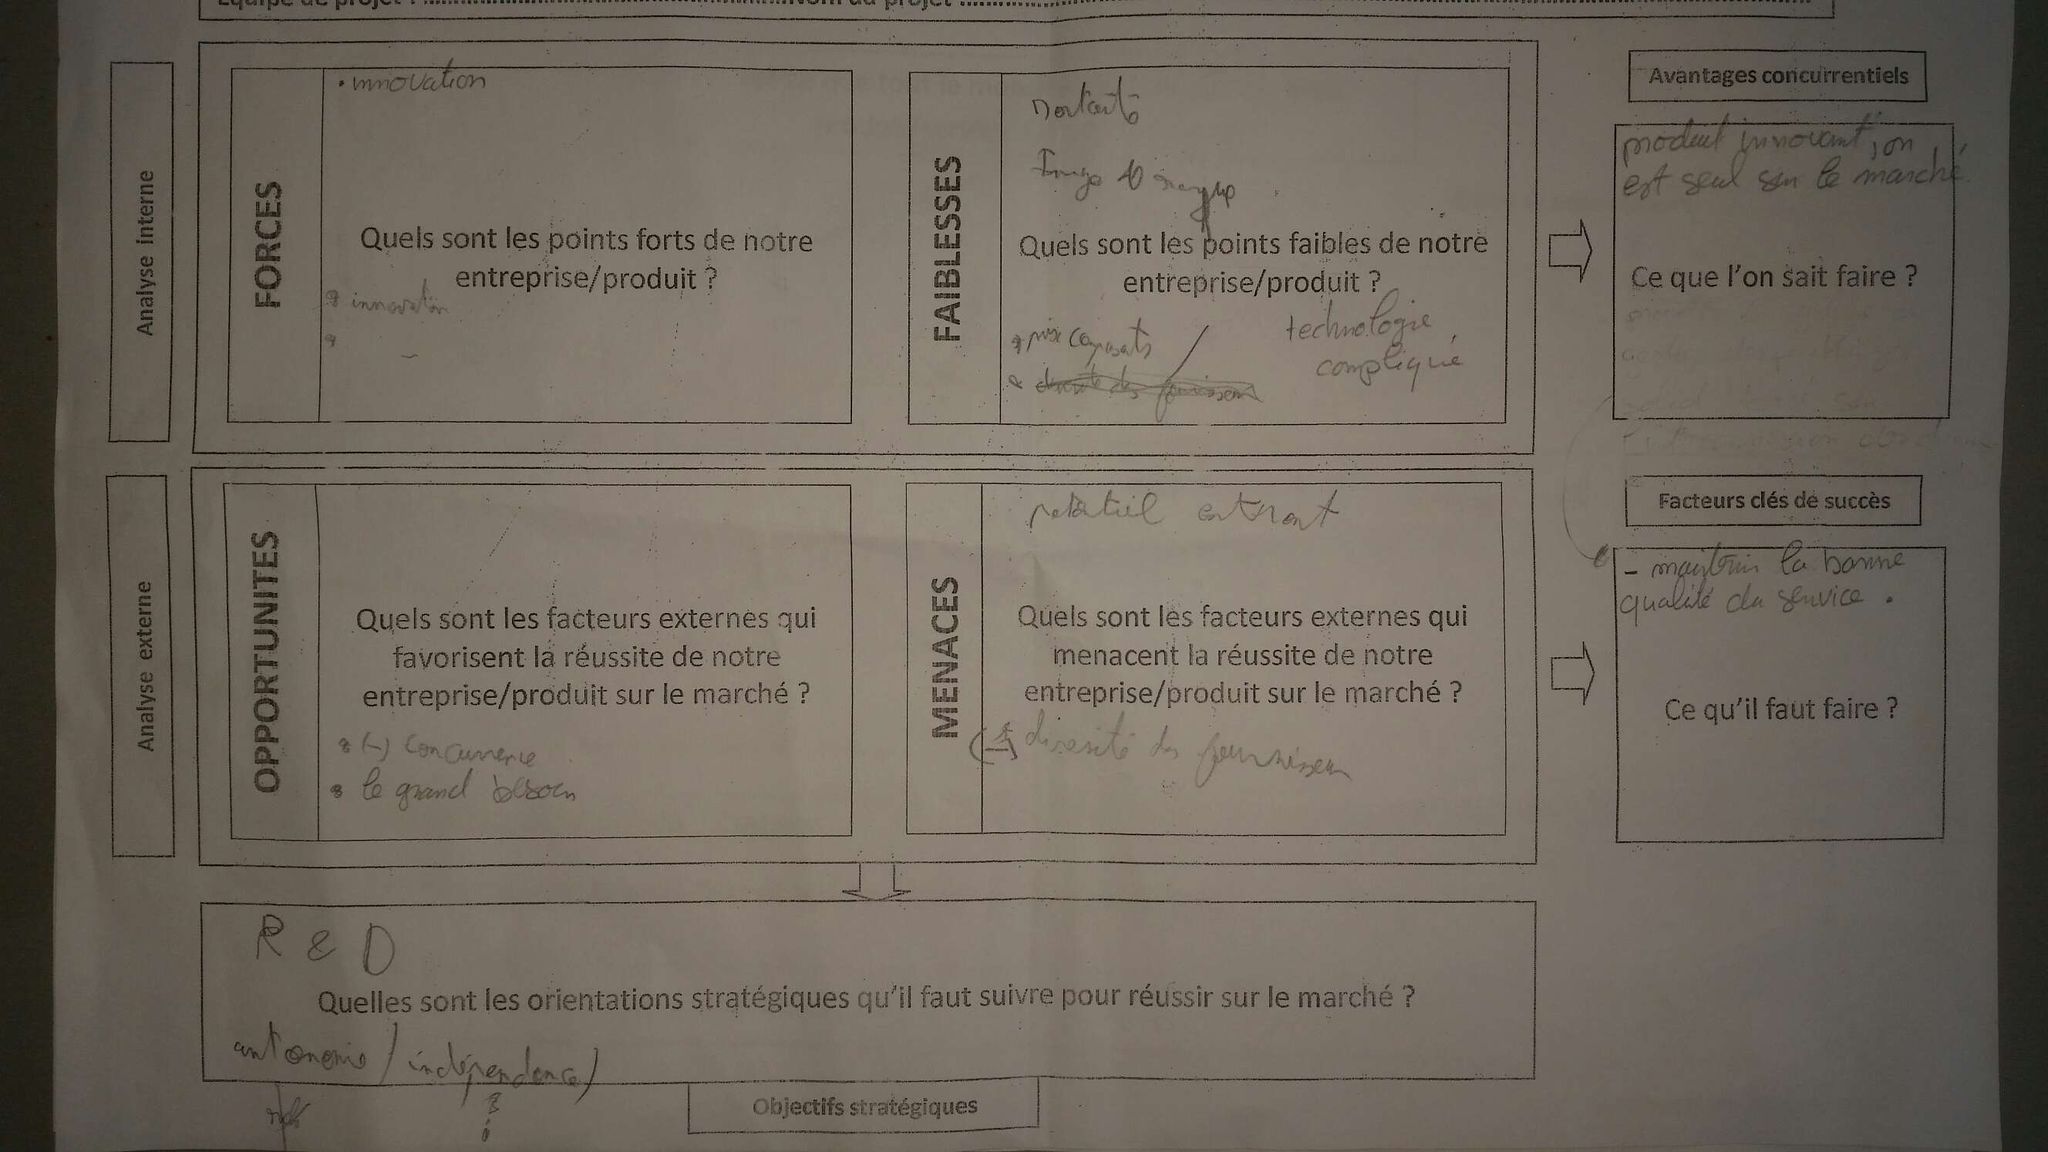 Equipe de projet : Nom du projet
Analyse interne
FORCES
• innovation
Quels sont les points forts de notre
entreprise/produit ?
* innovation
*
FAIBLESSES
Image de marque
Quels sont les points faibles de notre
entreprise/produit ?
* prix composants
* diversité des fournisseurs
technologie
compliqué
Avantages concurrentiels
produit innovant, on
est seul sur le marché.
Ce que l'on sait faire ?
Analyse externe
OPPORTUNITES
Quels sont les facteurs externes qui
favorisent la réussite de notre
entreprise/produit sur le marché ?
* (-) concurrence
* le grand besoin
MENACES
potentiel entrant
Quels sont les facteurs externes qui
menacent la réussite de notre
entreprise/produit sur le marché ?
diversité des fournisseurs
Facteurs clés de succès
- maintenir la bonne
qualité du service.
Ce qu'il faut faire ?
R & D
Quelles sont les orientations stratégiques qu'il faut suivre pour réussir sur le marché ?
autonomie / indépendance
Objectifs stratégiques